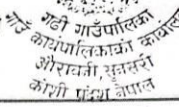 गढी गाउँपालिका
गाउँ कार्यपालिकाको कार्यालय
औराबनी, सुनसरी
कोशी प्रदेश नेपाल